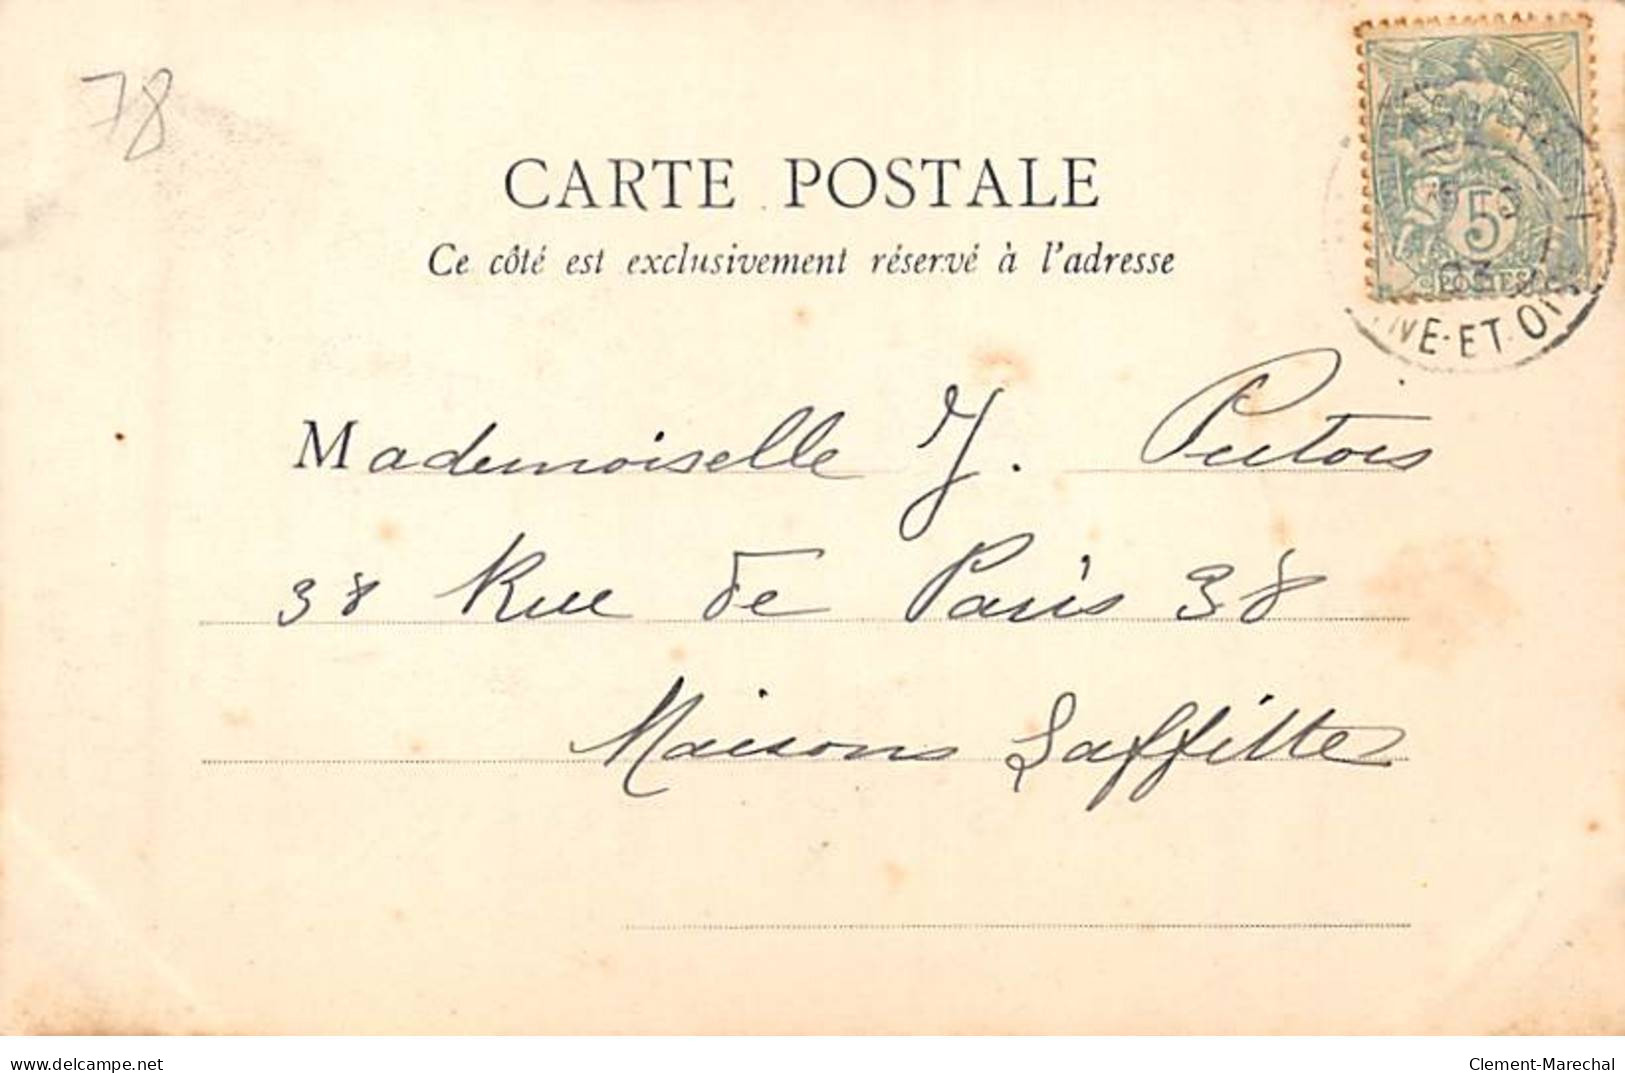 78
CARTE POSTALE
Ce côté est exclusivement réservé à l'adresse
5
POSTES
NE-ET-OI
Mademoiselle J. Putois
38 Rue de Paris 38
Maisons Laffittes
delcampe.net
Clement-Marechal